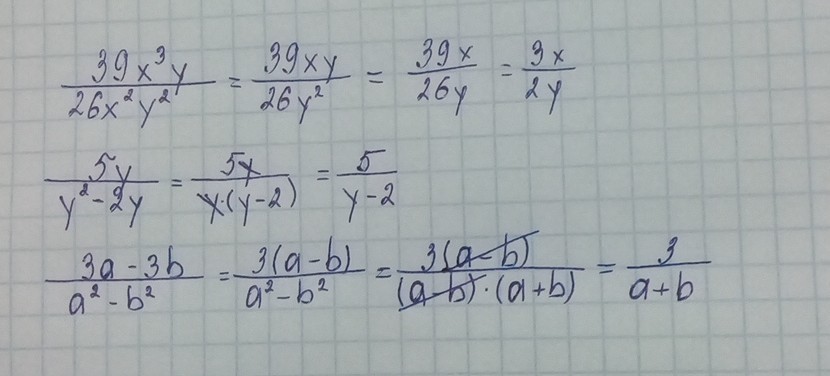 39x³y/26x²y² = 39xy/26y² = 39x/26y = 3x/2y
5y/y²-2y = 5y/y·(y-2) = 5/y-2
3a-3b/a²-b² = 3(a-b)/a²-b² = 3(a-b)/(a-b)·(a+b) = 3/a+b